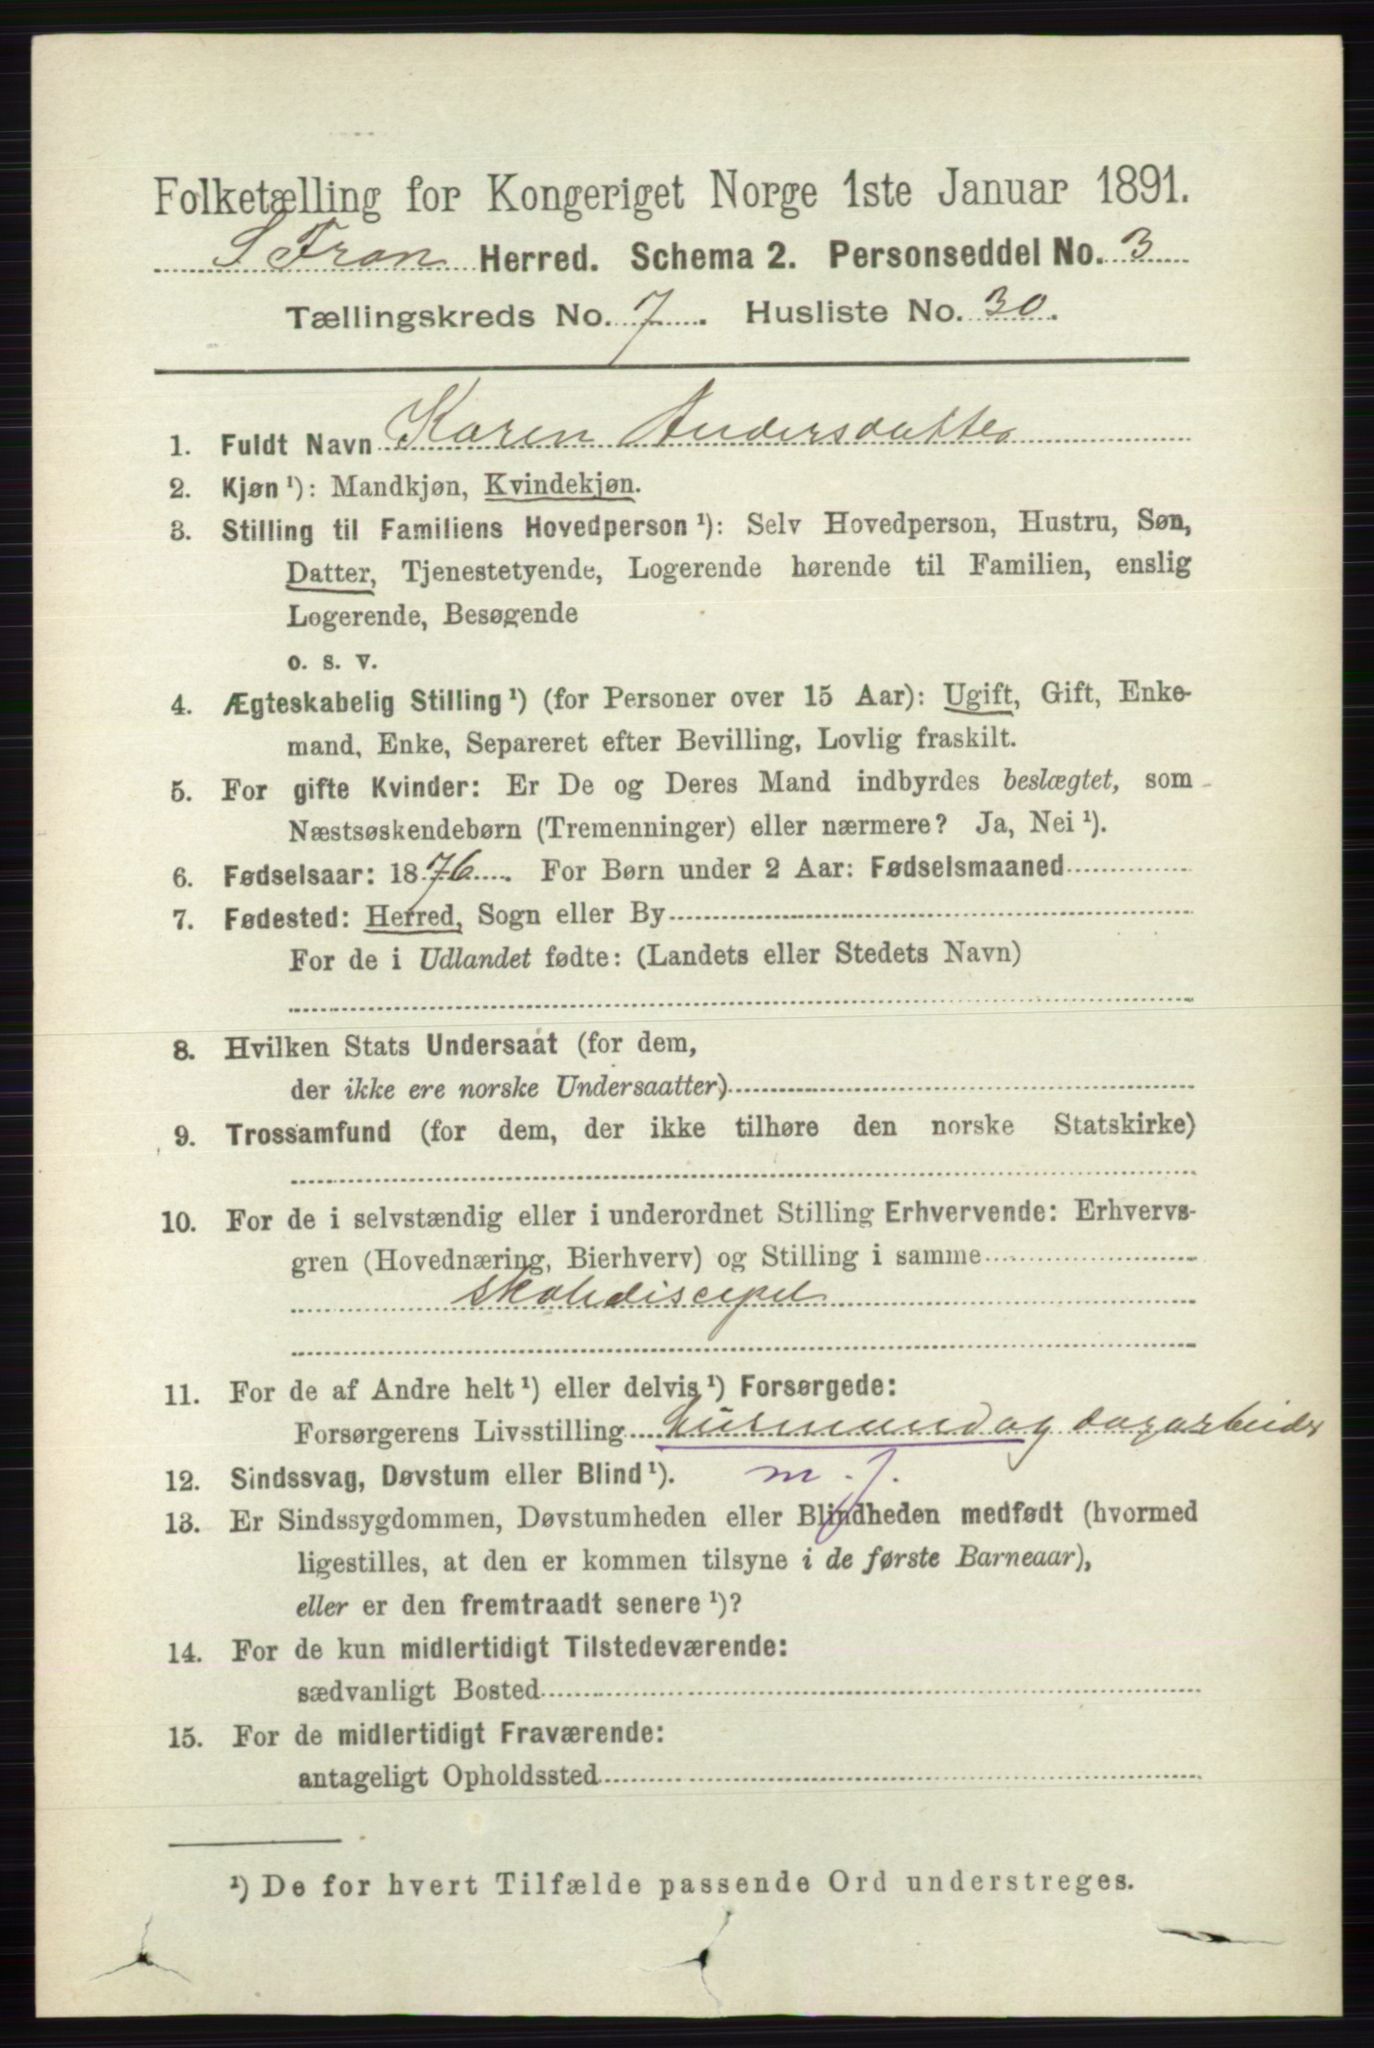 Folketælling for Kongeriget Norge 1ste Januar 1891.
S Fron Herred. Schema 2. Personseddel No. 3
Tællingskreds No. 7. Husliste No. 30.
1. Fuldt Navn Karen Andersdatter
2. Kjøn ¹): Mandkjøn, Kvindekjøn.
3. Stilling til Familiens Hovedperson ¹): Selv Hovedperson, Hustru, Søn,
Datter, Tjenestetyende, Logerende hørende til Familien, enslig
Logerende, Besøgende
o. s. v.
4. Ægteskabelig Stilling ¹) (for Personer over 15 Aar): Ugift, Gift, Enke-
mand, Enke, Separeret efter Bevilling, Lovlig fraskilt.
5. For gifte Kvinder: Er De og Deres Mand indbyrdes beslægtet, som
Næstsøskendebørn (Tremenninger) eller nærmere? Ja, Nei ¹).
6. Fødselsaar: 1876. For Børn under 2 Aar: Fødselsmaaned
7. Fødested: Herred, Sogn eller By
For de i Udlandet fødte: (Landets eller Stedets Navn)
8. Hvilken Stats Undersaat (for dem,
der ikke ere norske Undersaatter)
9. Trossamfund (for dem, der ikke tilhøre den norske Statskirke)
10. For de i selvstændig eller i underordnet Stilling Erhvervende: Erhvervs-
gren (Hovednæring, Bierhverv) og Stilling i samme
skolediscipel
11. For de af Andre helt ¹) eller delvis ¹) Forsørgede:
Forsørgerens Livsstilling husmand og dagarbeider
12. Sindssvag, Døvstum eller Blind ¹). m. j.
13. Er Sindssygdommen, Døvstumheden eller Blindheden medfødt (hvormed
ligestilles, at den er kommen tilsyne i de første Barneaar),
eller er den fremtraadt senere ¹)?
14. For de kun midlertidigt Tilstedeværende:
sædvanligt Bosted
15. For de midlertidigt Fraværende:
antageligt Opholdssted
¹) De for hvert Tilfælde passende Ord understreges.